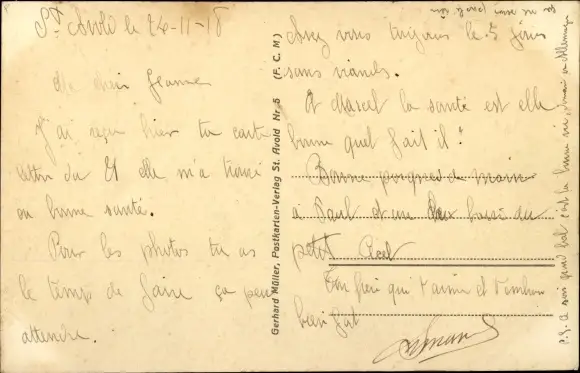 St Avold le 24-11-18
Ma chère Jeanne
J'ai reçu hier ta carte
lettre du 21 elle m'a trouvé
en bonne santé.
Pour les photos tu as
le temps de faire ça peut
attendre.
Gerhard Müller, Postkarten-Verlag St. Avold Nr. 5 (F. C. M)
Avez vous toujours le 5 jours
sans viandes.
Et Marcel la santé est elle
bonne quel fait il?
Bonne poignée de main
à Paul et un baiser au
petit
Ton frère qui t'aime et t'embrasse
bien fort
P.S. a son grand c'est la bonne vie, en Allemagne